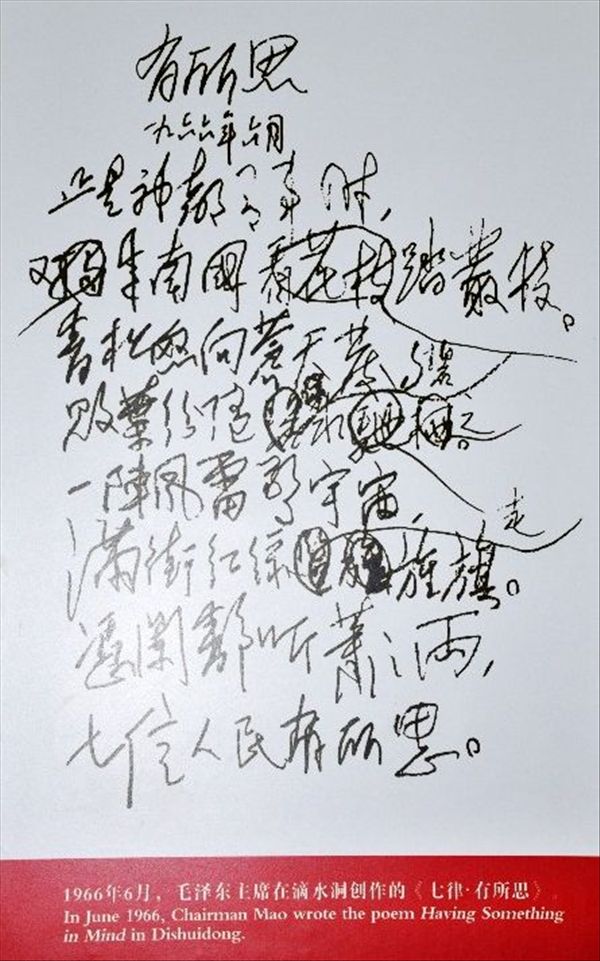 有所思
一九六六年六月
正是神都有事时,
又来南國看花枝踏叢枝。
青松怒向苍天发 碧
败葉纷随水驰
一阵风雷惊宇宙,
走
满街红绿旌旗。
憑阑静听萧萧雨,
七亿人民有所思。
1966年6月，毛泽东主席在滴水洞创作的《七律·有所思》。
In June 1966, Chairman Mao wrote the poem Having Something
in Mind in Dishuidong.